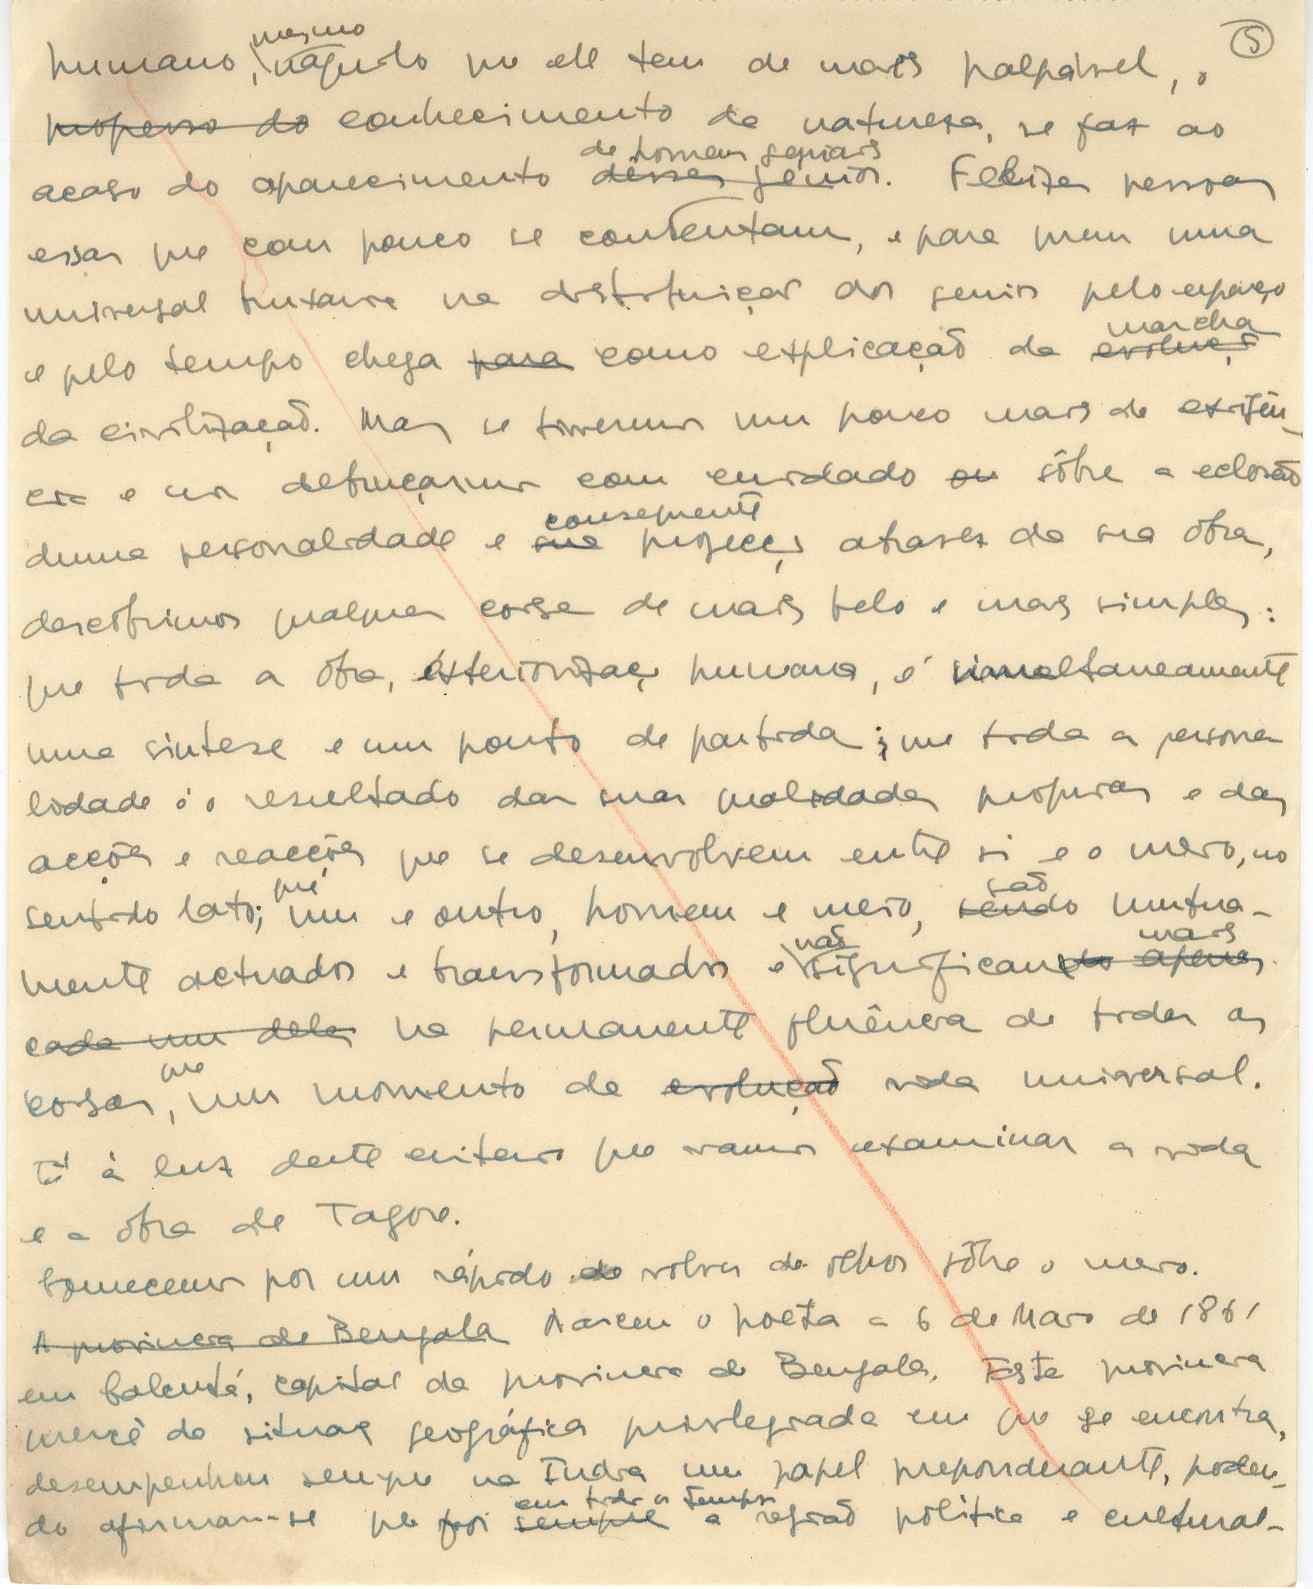 5
mesmo
humano, naquilo que ele tem de mais palpável, o
progresso do conhecimento da natureza, se faz ao
de homens geniais
acaso do aparecimento desses génios. Felizes pessoas
essas que com pouco se contentam, e para quem uma
universal na distribuição dos genios pelo espaço
marcha
e pelo tempo chega para como explicação da evolução
da civilização. Mas se tivermos um pouco mais de exigên-
cia e nos debruçarmos com cuidado ou sôbre a eclosão
consequente
duma personalidade e sua projecção atravez da sua obra,
descobrimos qualquer coisa de mais belo e mais simples:
que toda a obra, exteriorização humana, é simultaneamente
uma sintese e um ponto de partida; que toda a persona
lidade é o resultado das suas qualidades proprias e das
acções e reacções que se desenvolvem entre si e o meio, no
que são
sentido lato; um e outro, homem e meio, sendo mutua-
não mais
mente actuados e transformados e significando apenas
cada um deles na permanente fluência de todas as
que
coisas, um momento da evolução vida universal.
É à luz deste criterio que vamos examinar a vida
e a obra de Tagore.
Comecemos por um rápido de volver de olhos sôbre o meio.
A provincia de Bengala Nasceu o poeta a 6 de Maio de 1861
em Calcutá, capital da provincia de Bengala. Esta provincia
mercê da situação geográfica privilegiada em que se encontra,
desempenhou sempre na India um papel preponderante, poden-
em todos os tempos
do afirmar-se que foi sempre a região política e cultural-